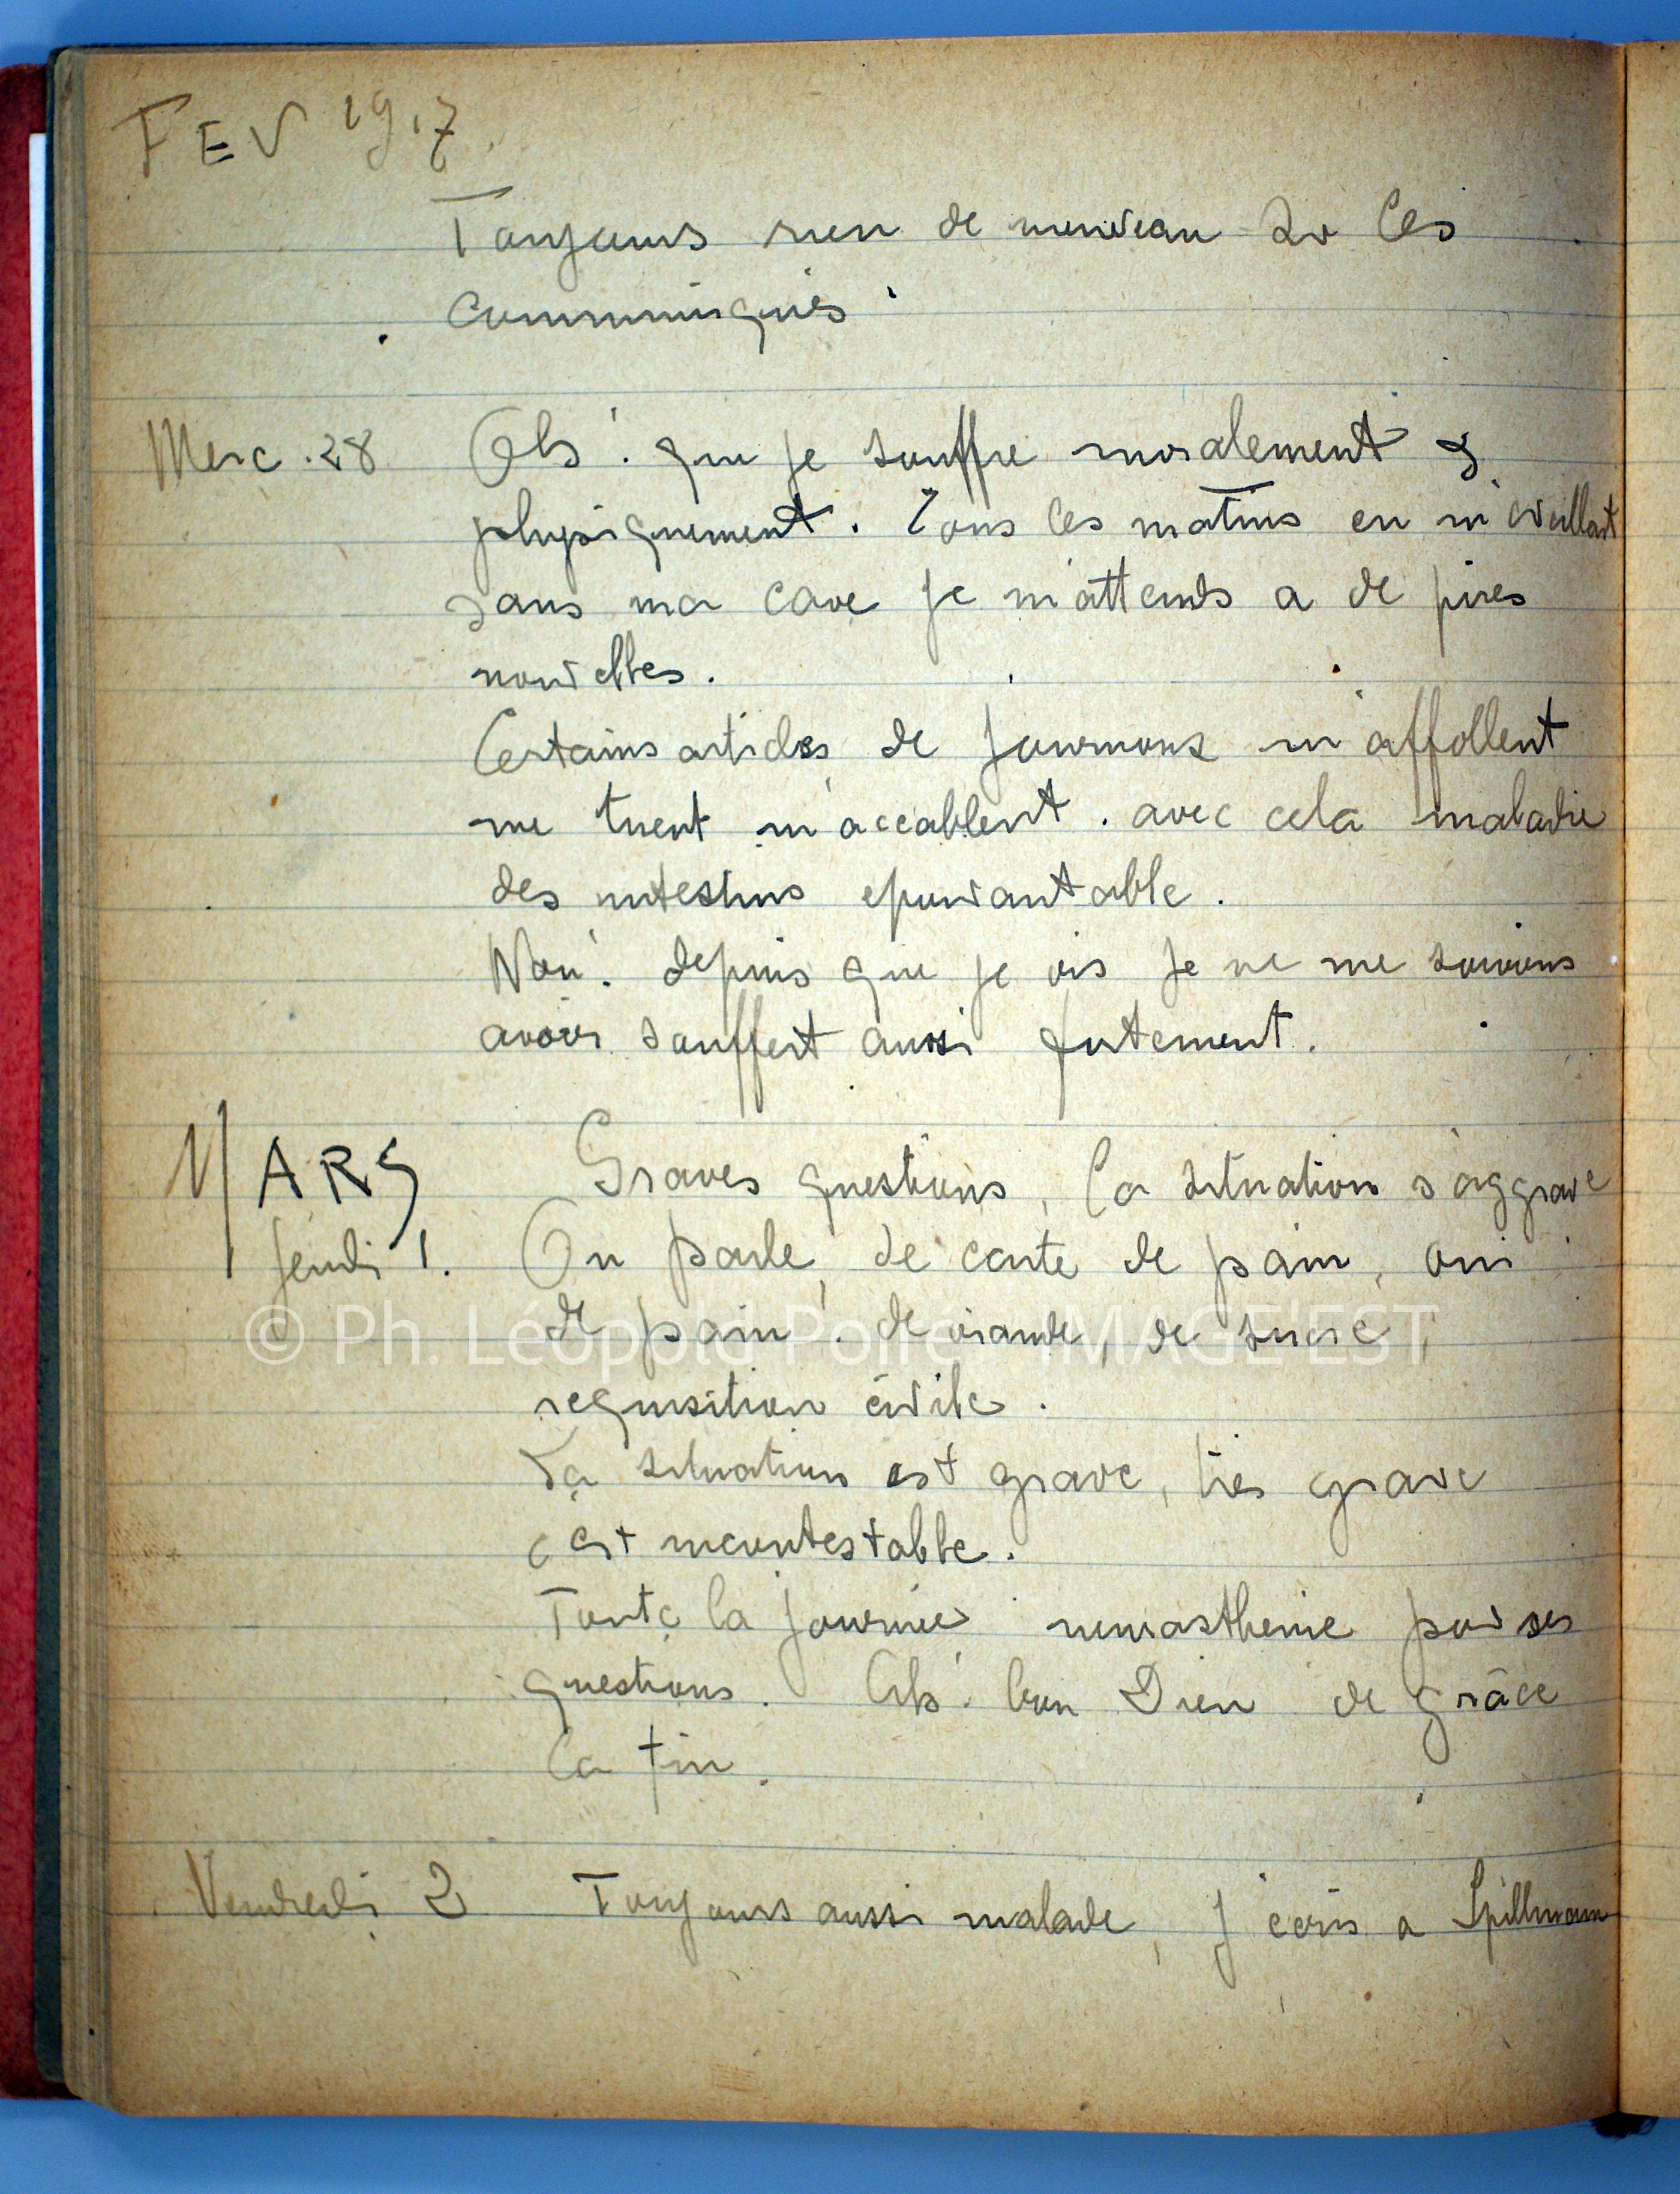 FEV 1917.
Toujours rien de nouveau sur les
communiqués.
Merc. 28 Oh! que je souffre moralement &
physiquement. Tous les matins en m'éveillant
dans ma cave je m'attends a de pires
nouvelles.
Certains articles de journaux m'affollent
me tuent m'accablent. avec cela maladie
des intestins epouvantable.
Non! depuis que je vis je ne me souviens
avoir souffert aussi fortement.
MARS Graves questions, la situation s'aggrave
Jeudi 1. On parle, de carte de pain, oui
de pain! de viande, de sucre,
© Ph. Léopold Poiré - IMAGE'EST
requisition civile.
La situation est grave, très grave
c'est incontestable.
Toute la journée neurasthenie par ses
questions. Ah! bon Dieu de grâce
la fin.
Vendredi 2 Toujours aussi malade, j'écris a Spillmann